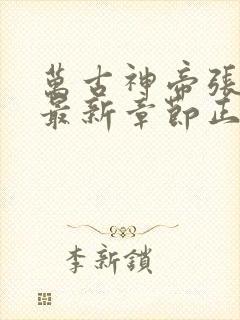 萬古神帝張
最新章節正
李新鎖